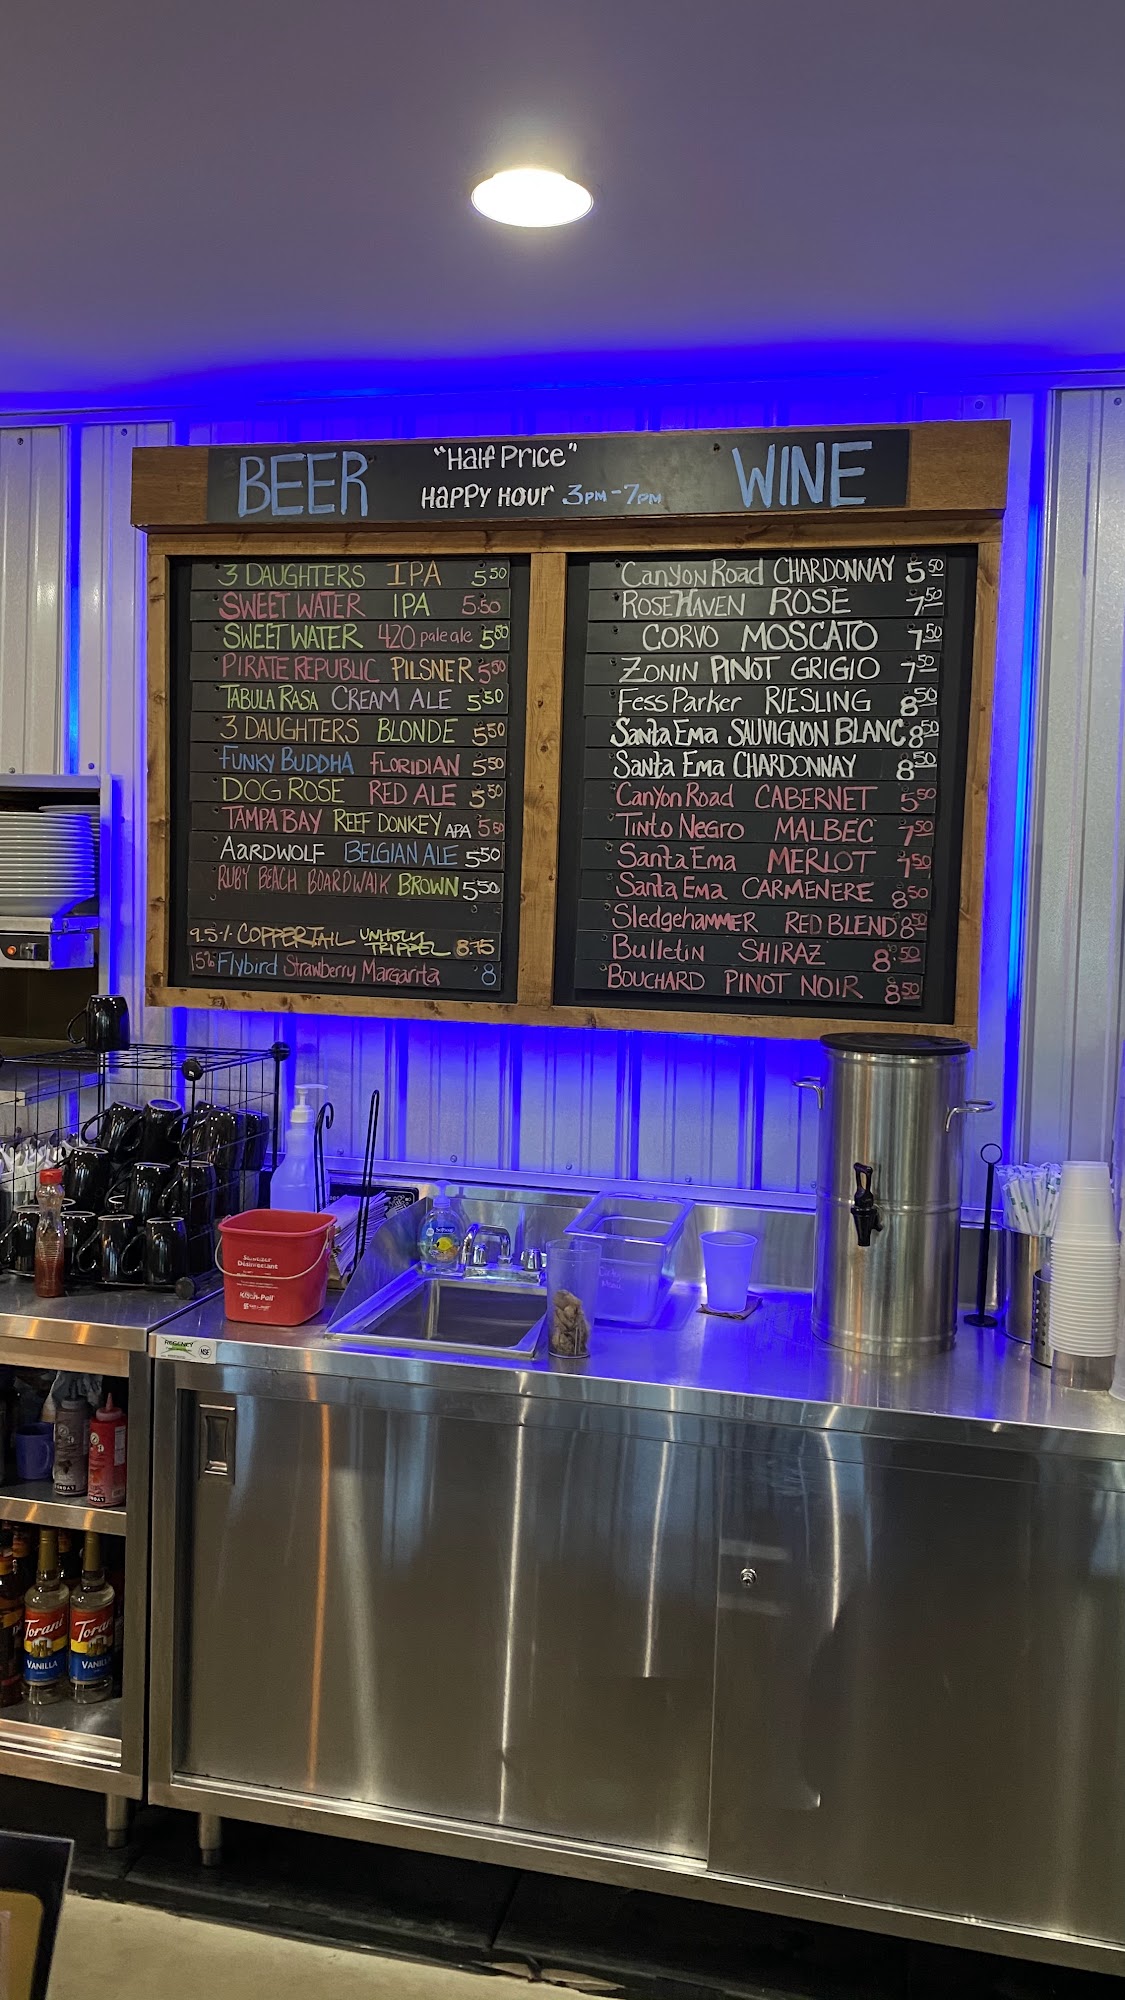 BEER "Half Price" WINE
HAPPY HOUR 3PM-7PM
3 DAUGHTERS IPA 5.50
SWEET WATER IPA 5.50
SWEET WATER 420 pale ale 5.50
PIRATE REPUBLIC PILSNER 5.50
TABULA RASA CREAM ALE 5.50
3 DAUGHTERS BLONDE 5.50
FUNKY BUDDHA FLORIDIAN 5.50
DOG ROSE RED ALE 5.50
TAMPA BAY REEF DONKEY APA 5.50
AARDWOLF BELGIAN ALE 5.50
RUBY BEACH BOARDWALK BROWN 5.50
9.5% COPPERTAIL UNHOLY TRIPPEL 8.75
15% Flybird Strawberry Margarita 8
Canyon Road CHARDONNAY 5.50
ROSEHAVEN ROSE 7.50
CORVO MOSCATO 7.50
ZONIN PINOT GRIGIO 7.50
Fess Parker RIESLING 8.50
Santa Ema SAUVIGNON BLANC 8.50
Santa Ema CHARDONNAY 8.50
Canyon Road CABERNET 5.50
Tinto Negro MALBEC 7.50
Santa Ema MERLOT 7.50
Santa Ema CARMENERE 8.50
Sledgehammer RED BLEND 8.50
Bulletin SHIRAZ 8.50
BOUCHARD PINOT NOIR 8.50
Sanitizer
Desinfectante
Kleen-Pail
REGENCY
NSF
Torani
VANILLA
Torani
VANILLA